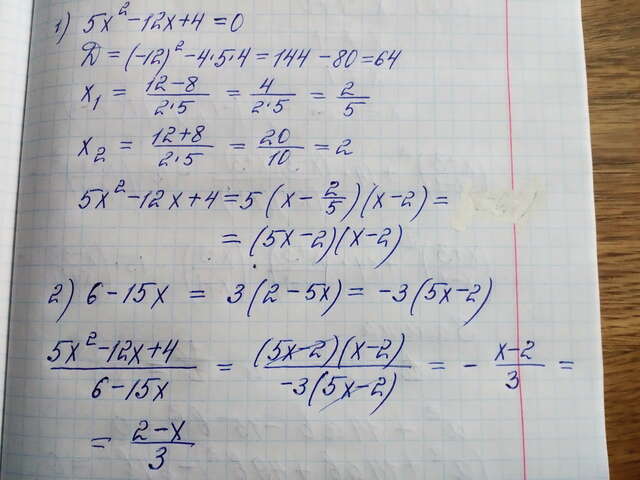 1) 5x² - 12x + 4 = 0
Д = (-12)² - 4·5·4 = 144 - 80 = 64
x₁ = (12 - 8)/(2·5) = 4/(2·5) = 2/5
x₂ = (12 + 8)/(2·5) = 20/10 = 2
5x² - 12x + 4 = 5(x - 2/5)(x - 2) =
= (5x - 2)(x - 2)
2) 6 - 15x = 3(2 - 5x) = -3(5x - 2)
(5x² - 12x + 4)/(6 - 15x) = (5x - 2)(x - 2)/(-3(5x - 2)) = - (x - 2)/3 =
= (2 - x)/3